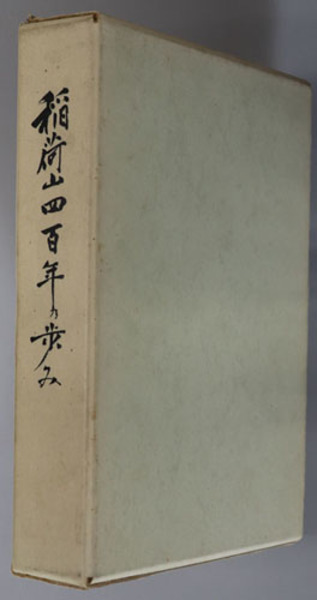 稲荷山四百年の歩み